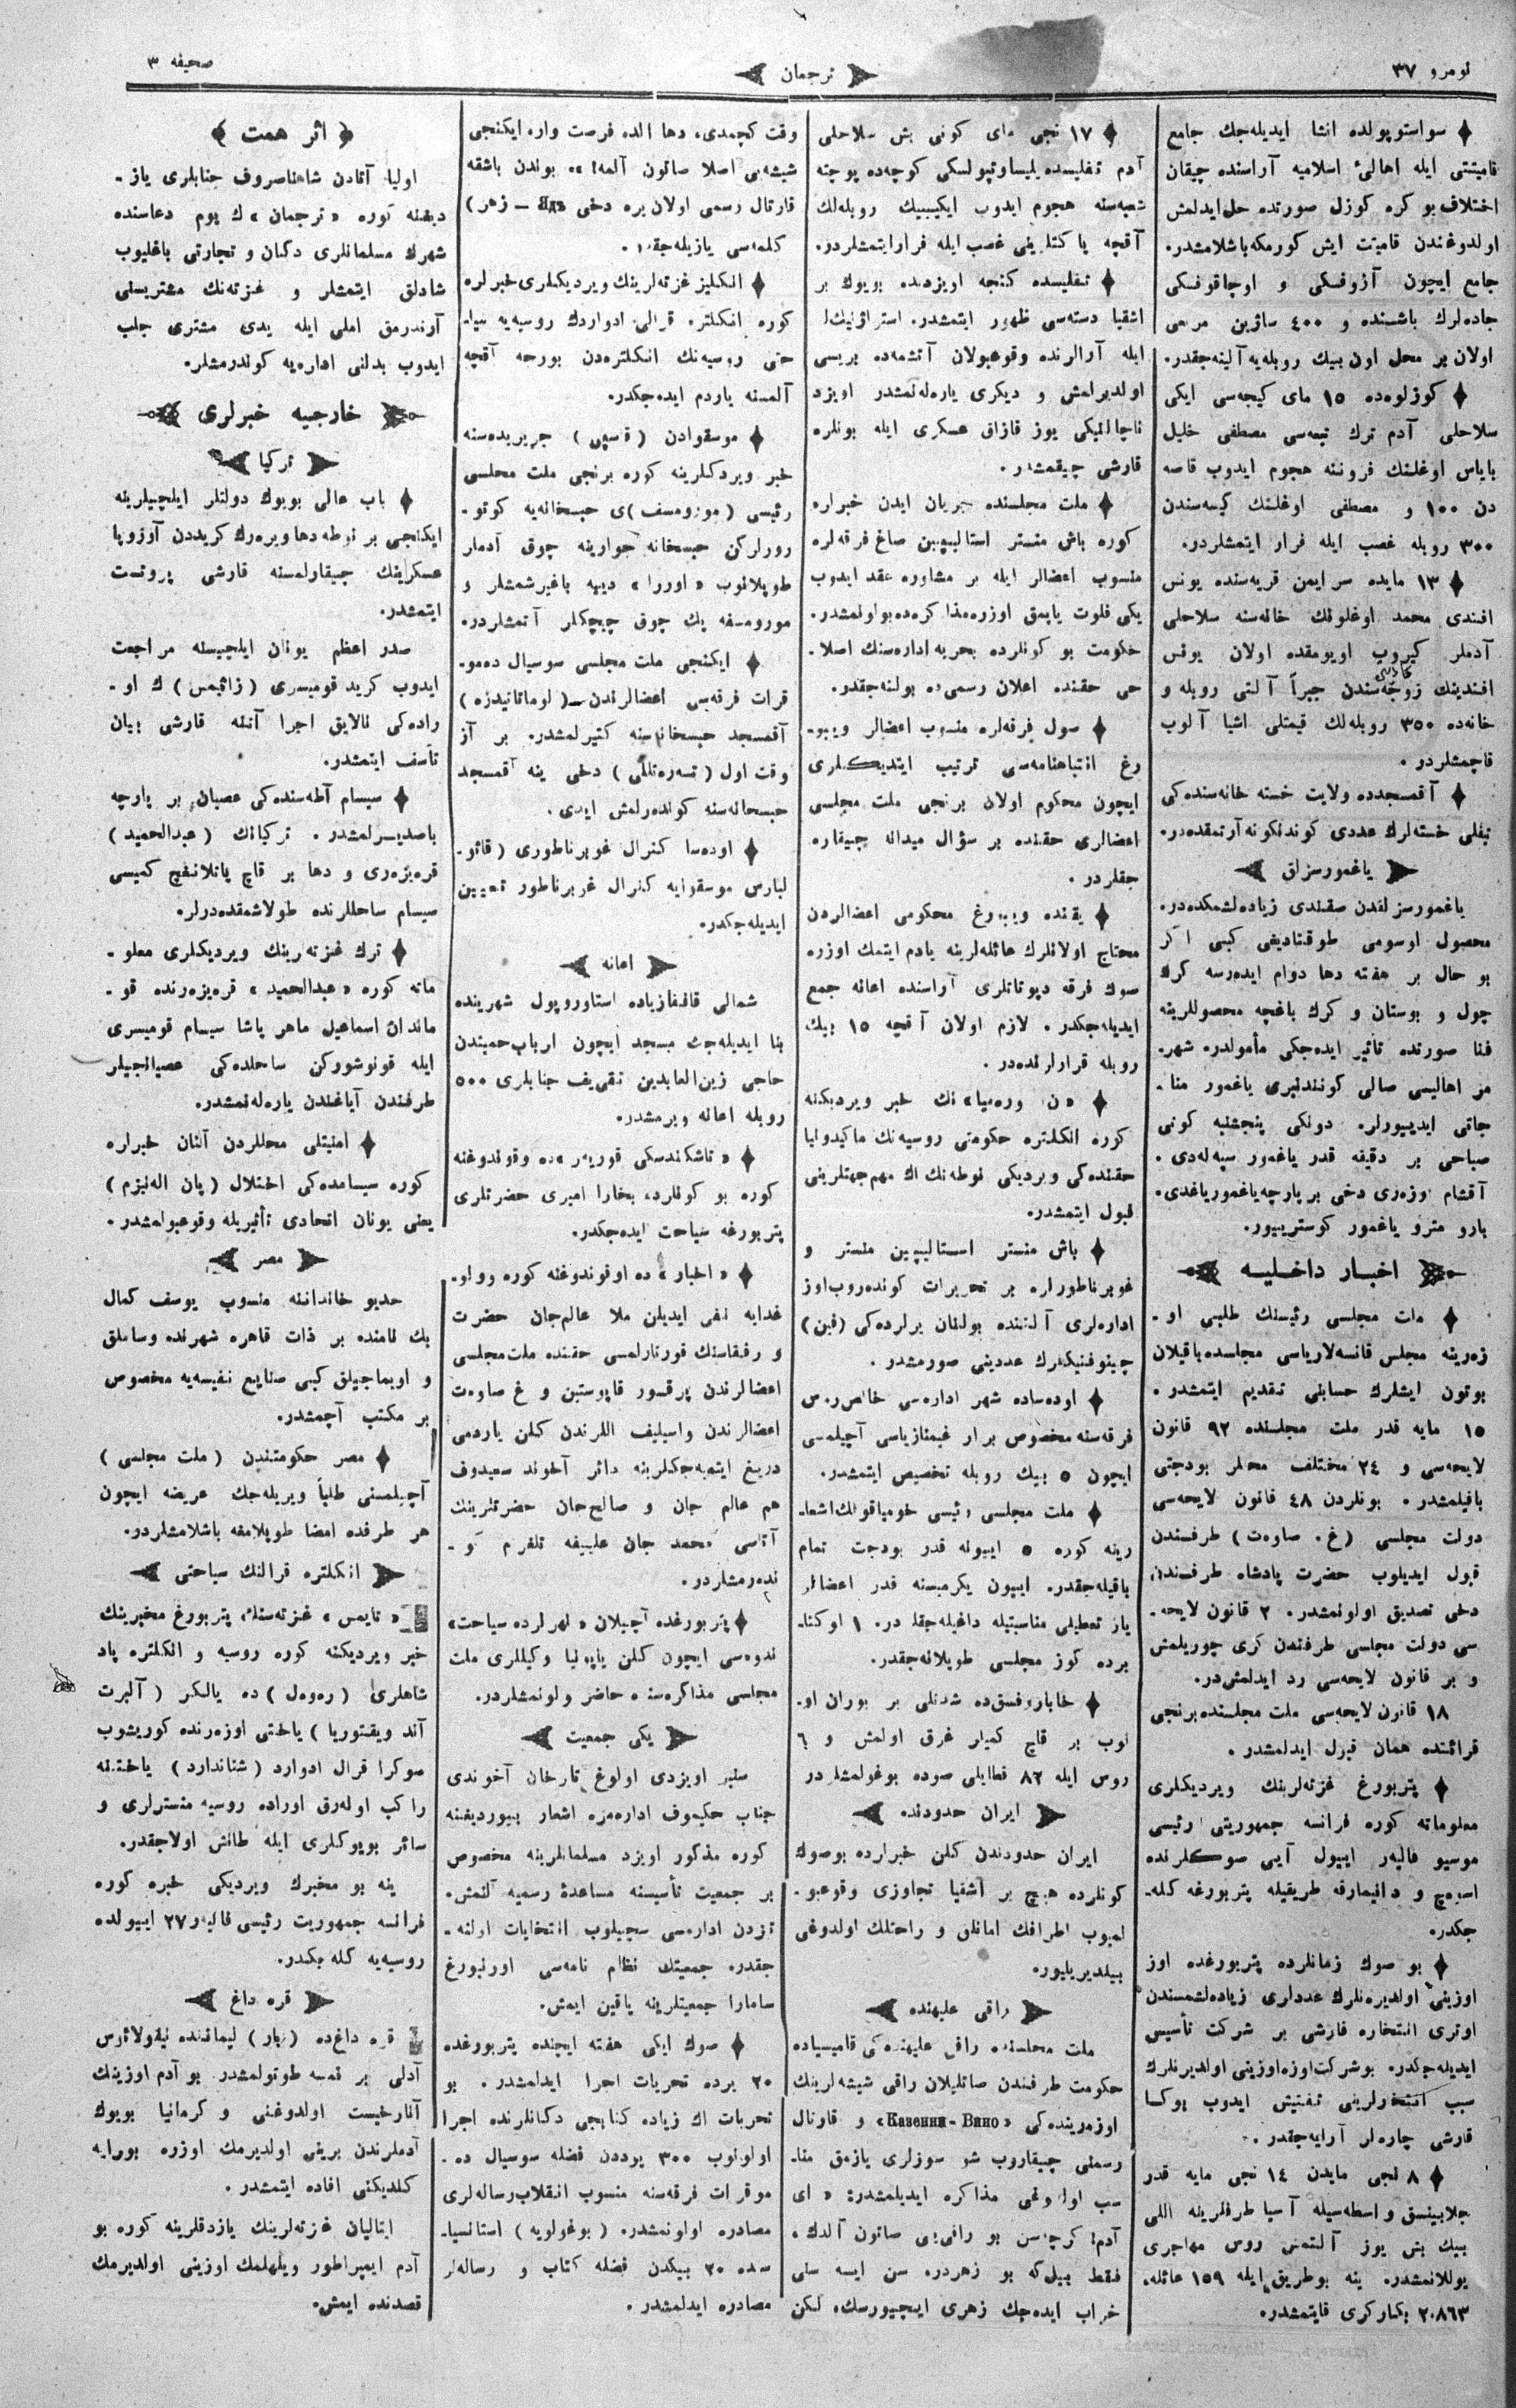 نومرو ٣٧
ترجمان
صحیفه ٣
سواستوپولده انشا ایدیله‌جك جامع
قامیتتی ایله اهالئ اسلامیه آراسنده چیقان
اختلاف بو كره كوزل صورتده حل ایدلمش
اولدوغندن قامیتت ایش كورمكه باشلامشدر.
جامع ایچون آزوفسكی و اوچاقوفسكی
جاده‌لرك باشنده و ٤٠٠ ساژین مربعی
اولان بر محل اون بیك روبله‌یه آلینه‌جقدر.
كوزلوه‌ده ١٥ مای كیجه‌سی ایكی
سلاحلی آدم ترك تبعه‌سی مصطفی خلیل
بایاس اوغلینك فروننه هجوم ایدوب قاصه
دن ١٠٠ و مصطفی اوغلینك كیسه‌سندن
٣٠٠ روبله غصب ایله فرار ایتمشلردر.
١٣ مایده سرایمن قریه‌سنده یونس
افندی محمد اوغلونك خانه‌سنه سلاحلی
آدملر كیروب اویومقده اولان یونس
افندینك زوجه‌سندن جبراً آلتی روبله و
خانه‌ده ٣٥٠ روبله‌لك قیمتلی اشیا آلوب
قاچمشلردر.
آقمسجدده ولایت خسته خانه‌سنده‌كی
تیفلی خسته‌لرك عددی كوندنكونه آرتمقده‌در.
یاغمورسزلق
یاغمورسزلقدن صقندی زیاده‌لشمكده‌در.
محصول اوسومی طوقتادیغی كبی اكر
بو حال بر هفته دها دوام ایده‌رسه كرك
چول و بوستان و كرك باغچه محصوللرینه
فنا صورتده تاثیر ایده‌جكی مأمولدر. شهر-
مز اهالیسی صالی كونندنبری یاغمور منا-
جاتی ایدییورلر. دونكی پنجشنبه كونی
صباحی بر دقیقه قدر یاغمور سپه‌له‌دی.
آقشام اوزه‌ری دخی بر پارچه یاغمور یاغدی.
بارو مترو یاغمور كوسترییور.
اخبار داخلیه
ملت مجلسی رئیسنك طلبی او-
زه‌رینه مجلس قانسه‌لاریاسی مجلسده باقیلان
بوتون ایشلرك حسابنی تقدیم ایتمشدر.
١٥ مایه قدر ملت مجلسنده ٩٢ قانون
لایحه‌سی و ٢٤ مختلف محللر بودجتی
باقیلمشدر. بونلردن ٤٨ قانون لایحه‌سی
دولت مجلسی (غ. صاوه‌ت) طرفندن
قبول ایدیلوب حضرت پادشاه طرفندن
دخی تصدیق اولونمشدر. ٢ قانون لایحه-
سی دولت مجلسی طرفندن كری چوریلمش
و بر قانون لایحه‌سی رد ایدلمشدر.
١٨ قانون لایحه‌سی ملت مجلسنده برنجی
قرائتنده همان قبول ایدلمشدر.
پتربورغ غزته‌لرینك ویردیكلری
معلوماته كوره فرانسه جمهوریتی رئیسی
موسیو فالیه‌ر ایيول آیی صوكلرنده
اسوه‌چ و دانیمارقه طریقیله پتربورغه كله-
جكدر.
بو صوك زمانلرده پتربورغده اوز
اوزینی اولدیره‌نلرك عددلری زیاده‌لشمسندن
اوتری انتخاره قارشی بر شركت تأسیس
ایدیله‌جكدر. بو شركت اوزه اوزینی اولدیرنلرك
سبب انتخارلرینی تفتیش ایدوب بوكا
قارشی چاره‌لر آرایه‌جقدر.
٨ نجی مایدن ١٤ نجی مایه قدر
چلابینسق واسطه‌سیله آسیا طرفلرینه اللی
بیك بش یوز آلتمش روس مهاجری
یوللانمشدر. ینه بو طریق ایله ١٥٩ عائله،
٢٠٨٦٣ بكار كری قایتمشدر.
١٧ نجی مای كونی بش سلاحلی
آدم تفلیسده یلیساوتپولسكی كوچه‌ده پوچته
شعبه‌سنه هجوم ایدوب ایكیبیك روبله‌لك
آقچه پاكتلرینی غصب ایله فرار ایتمشلردر.
تفلیسده كنجه اویزدنده بویوك بر
اشقیا دسته‌سی ظهور ایتمشدر. استراژنیك
ایله آرالرنده وقوعبولان آتشمه‌ده بریسی
اولدیرلمش و دیكری یاره‌له‌نمشدر اویزد
ناچالنیكی یوز قازاق عسكری ایله بونلره
قارشی چیقمشدر.
ملت مجلسنده جریان ایدن خبرلره
كوره باش منستر استالیپین صاغ فرقه‌لره
منسوب اعضالر ایله بر مشاوره عقد ایدوب
یكی فلوت یاپمق اوزره مذاكره‌ده بولونمشدر.
حكومت بو كونلرده بحریه اداره‌سنك اصلا-
حی حقنده اعلان رسمی‌ده بولنه‌جقدر.
سول فرقه‌لره منسوب اعضالر ویبو-
رغ انتباهنامه‌سی ترتیب ایتدیكلری
ایچون محكوم اولان برنجی ملت مجلسی
اعضالری حقنده بر سؤال میدانه چیقاره
جقلردر.
یقنده ویبورغ محكومی اعضالردن
محتاج اولانلرك عائله‌لرینه یادم ایتمك اوزره
صوك فرقه دپوتاتلری آراسنده اعانه جمع
ایدیله‌جكدر. لازم اولان آقچه ١٥ بیك
روبله قرارلرنده‌در.
«ن وره‌میا» نك خبر ویردیكنه
كوره انكلتره حكومتی روسیه‌نك ماكیدونیا
حقنده‌كی ویردیكی نوطه‌نك اك مهم جهتلرینی
قبول ایتمشدر.
باش منستر استالیپین منستر و
غوبرناطورلره بر تحریرات كونده‌روب اوز
اداره‌لری آلتنده بولنان یرلرده‌كی (فین)
چینوفنیكلرك عددینی صورمشدر.
اوده‌ساده شهر اداره‌سی خالص روس
فرقه‌سنه مخصوص برار غیمنازیاسی آچیلمسی
ایچون ٥ بیك روبله تخصیص ایتمشدر.
ملت مجلسی رئیسی خومیاقوفك اشعا-
رینه كوره ٥ ایيوله قدر بودجت تمام
باقیله‌جقدر. ایيون یكرمیسنه قدر اعضالر
یاز تعطیلی مناسبتیله داغیله‌جقلردر. ١ اوكتا-
برده كوز مجلسی طوپلانه‌جقدر.
خاباروفسق‌ده شدتلی بر بوران او-
لوب بر قاچ كمیلر غرق اولمش و ٦
روس ایله ٨٢ قطایلی صوده بوغولمشلردر
ایران حدودنده
ایران حدودندن كلن خبرلرده بو صوك
كونلرده هیچ بر اشقیا تجاوزی وقوعبو-
لمیوب اطرافك امانلق و راحتلك اولدوغی
بیلدیریلیور.
راقی علیهنده
ملت مجلسنده راقی علیهنده‌كی قامیسیاده
حكومت طرفندن صاتیلان راقی شیشه‌لرینك
اوزه‌رینده‌كی «Казенна-Вино» و قارتال
رسمنی چیقاروب شو سوزلری یازمق منا-
سب اولدوغی مذاكره ایدیلمشدر: «ای
آدم! كرچه سن بو راقی‌یی صاتون آلدك،
فقط بیل كه بو زهردر. سن ایسه سنی
خراب ایده‌جك زهری ایچییورسك، لكن
وقت كچمدی، دها الده فرصت وار، ایكنجی
شیشه‌یی اصلا صاتون آلمه!». بوندن باشقه
قارتال رسمی اولان یره دخی (Ядъ — زهر)
كلمه‌سی یازیله‌جقدر.
انكلیز غزته‌لرینك ویردیكلری خبرلره
كوره انكلتره قرالی ادواردك روسیه‌یه سیا-
حتی روسیه‌نك انكلتره‌دن بورجه آقچه
آلمسنه یاردم ایده‌جكدر.
موسقوادن (قاسپی) جریده‌سنه
خبر ویردكلرینه كوره برنجی ملت مجلسی
رئیسی (مورومسف)ی حبسخانه‌یه كوتو-
رورلركن حبسخانه جوارینه چوق آدملر
طوپلانوب «اوررا» دییه باغیرشمشلر و
مورومسفه پك چوق چیچكلر آتمشلردر.
ایكنجی ملت مجلسی سوسیال ده‌مو-
قرات فرقه‌سی اعضالرندن (لوماتاتیدزه)
آقمسجد حبسخانه‌سنه كتیرلمشدر. بر آز
وقت اول (تسه‌ره‌تللی) دخی ینه آقمسجد
حبسخانه‌سنه كونده‌رلمش ایدی.
اوده‌سا كنرال غوبرناطوری (قاتو-
لبارس موسقوایه كنرال غوبرناطور تعیین
ایدیله‌جكدر.
اعانه
شمالی قافقازیاده استاوروپول شهرینده
بنا ایدیله‌جك مسجد ایچون ارباب حمیتدن
حاجی زین‌العابدین تقییف جنابلری ٥٠٠
روبله اعانه ویرمشدر.
«تاشكندسكی قوریه‌ر» ده وقوندوغنه
كوره بو كونلرد، بخارا امیری حضرتلری
پتربورغه سیاحت ایده‌جكدر.
«اخبار» ده اوقوندوغنه كوره وولو-
غدایه نفی ایدیلن ملا عالم‌جان حضرت
و رفقاسنك قورتارلمسی حقنده ملت مجلسی
اعضالرندن پرفسور قاپوستین و غ صاوه‌ت
اعضالرندن واسیلیف اللرندن كلن یاردمی
دریغ ایتمیه‌جكلرینه دائر آخوند سعیدوف
هم عالم جان و صالح‌جان حضرتلرینك
آتاسی محمد جان علییفه تلغرام كو-
نده‌رمشلردر.
پتربورغده آچیلان «نهرلرده سیاحت»
ندوه‌سی ایچون كلن یاپونیا وكیللری ملت
مجلسی مذاكره‌سنده حاضر ولونمشلردر.
یكی جمعیت
ستیر اویزدی اولوغ تارخان آخوندی
جناب حكیموف اداره‌مزه اشعار بییوردیغنه
كوره مذكور اویزد مسلمانلرینه مخصوص
بر جمعیت تأسیسنه مساعدۀ رسمیه آلنمش.
تزدن اداره‌سی سچیلوب انتخابات اولنه-
جقدر. جمعیتك نظام نامه‌سی اورنبورغ
سامارا جمعیتلرینه یاقین ایمش.
صوك ایكی هفته ایچنده پتربورغده
٢٠ یرده تحریات اجرا ایدلمشدر. بو
تحریات اك زیاده كتابجی دكانلرنده اجرا
اولونوب ٣٠٠ پوددن فضله سوسیال ده-
موقرات فرقه‌سنه منسوب انقلاب رساله‌لری
مصادره اولونمشدر. (بوغولویه) استانسیا-
سنده ٢٠ بیكدن فضله كتاب و رساله‌لر
مصادره ایدلمشدر.
اثر همت
اولیا آتادن شاهناصروف جنابلری یاز-
دیغنه كوره «ترجمان» ك یوم دعاسنده
شهرك مسلمانلری دكان و تجارتی باغلیوب
شادلق ایتمشلر و غزته‌نك مشتریسنی
آرتدرمق املی ایله یدی مشتری جلب
ایدوب بدلنی اداره‌یه كوندرمشلر.
خارجیه خبرلری
تركیا
باب عالی بویوك دولتلر ایلچیلرینه
ایكنجی بر نوطه دها ویره‌رك كریددن آوروپا
عسكرلرینك چیقارلمسنه قارشی پروتست
ایتمشدر.
صدر اعظم یونان ایلچیسنه مراجعت
ایدوب كرید قومیسری (زائیمس) ك او-
راده‌كی نالایق اجرا آتنه قارشی بیان
تأسف ایتمشدر.
سیسام آطه‌سنده‌كی عصیان بر پارچه
باصدیرلمشدر. تركیانك (عبدالحمید)
قره‌یزه‌ری و دها بر قاچ پاتلانغیچ كمیسی
سیسام ساحللرنده طولاشمقده‌درلر.
ترك غزته‌رینك ویردیكلری معلو-
ماته كوره «عبدالحمید» قره‌یزه‌رنده قو-
ماندان اسماعیل ماهر پاشا سیسام قومیسری
ایله قونوشوركن ساحلده‌كی عصیانجیلر
طرفندن آیاغندن یاره‌له‌نمشدر.
امنیتلی محللردن آلنان خبرلره
كوره سیسامده‌كی اختلال (پان اله‌نیزم)
یعنی یونان اتحادی تأثیریله وقوعبولمشدر.
مصر
خدیو خانداننه منسوب یوسف كمال
بك نامنده بر ذات قاهره شهرنده رساملق
و اویماجیلق كبی صنایع نفیسه‌یه مخصوص
بر مكتب آچمشدر.
مصر حكومتندن (ملت مجلسی)
آچیلمسنی طلباً ویریله‌جك عریضه ایچون
هر طرفده امضا طوپلامغه باشلامشلردر.
انكلتره قرالنك سیاحتی
«تایمس» غزته‌سنك پتربورغ مخبرینك
خبر ویردیكنه كوره روسیه و انكلتره پاد
شاهلری (ره‌وه‌ل) ده یالكز (آلبرت
آند ویقتوریا) یاختی اوزه‌رنده كوریشوب
صوكرا قرال ادوارد (شتاندارد) یاختینه
راكب اوله‌رق اوراده روسیه منسترلری و
سائر بویوكلری ایله طانش اولاجقدر.
ینه بو مخبرك ویردیكی خبره كوره
فرانسه جمهوریت رئیسی فالیه‌ر ٢٧ ایيولده
روسیه‌یه كله‌جكدر.
قره داغ
قره داغ‌ده (بار) لیماننده نیقولائوس
آدلی بر كمسه طوتولمشدر بو آدم اوزینك
آنارخیست اولدوغنی و كرمانیا بویوك
آدملرندن برینی اولدیرمك اوزره بورایه
كلدیكنی افاده ایتمشدر.
ایتالیان غزته‌لرینك یازدقلرینه كوره بو
آدم ایمپراطور ویلهلمك اوزینی اولدیرمك
قصدنده ایمش.